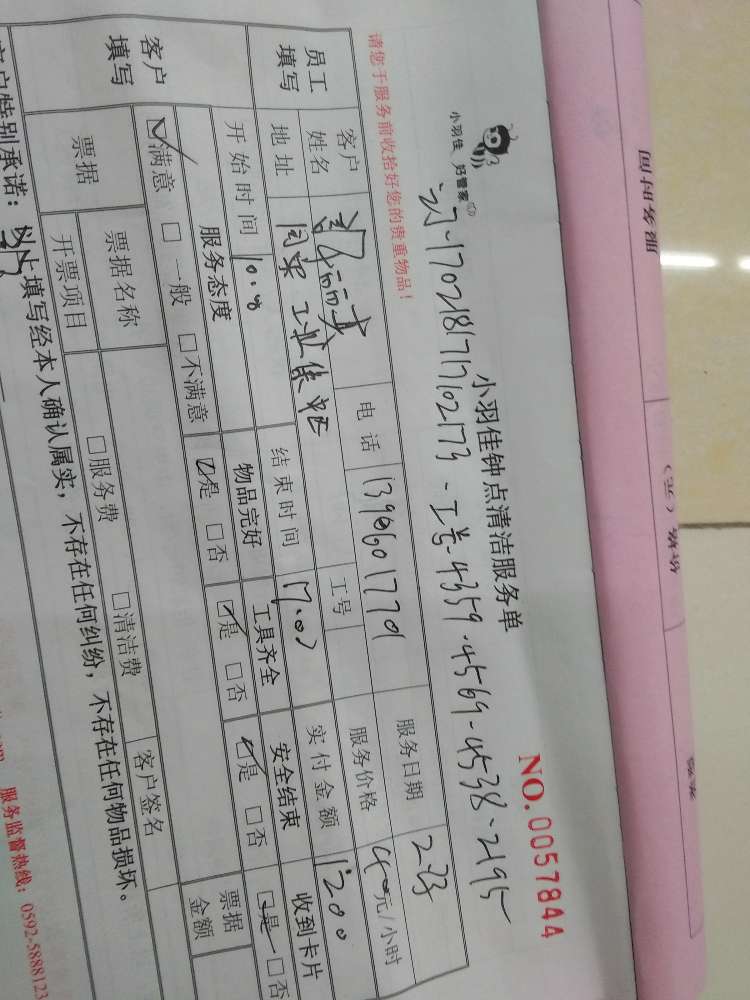 小羽佳 好管家
小羽佳钟点清洁服务单
NO.0057844
170218171762173-工号-4359.4569-4538-2195
请您于服务前收拾好您的贵重物品！
员工填写
客户姓名
电话 13906017701
服务日期 2.23
地址 同安工业集
工号
服务价格 40元/小时
开始时间 10.00
结束时间 17.00
实付金额 1200
收到卡片
客户填写
服务态度
物品完好
工具齐全
安全结束
☑是 □否
☑满意 □一般 □不满意
☑是 □否
☑是 □否
☑是 □否
票据金额
票据
票据名称
□服务费 □清洁费
客户签名
开票项目
客户特别承诺：以上填写经本人确认属实，不存在任何纠纷，不存在任何物品损坏。
服务监督热线：0592-5888123